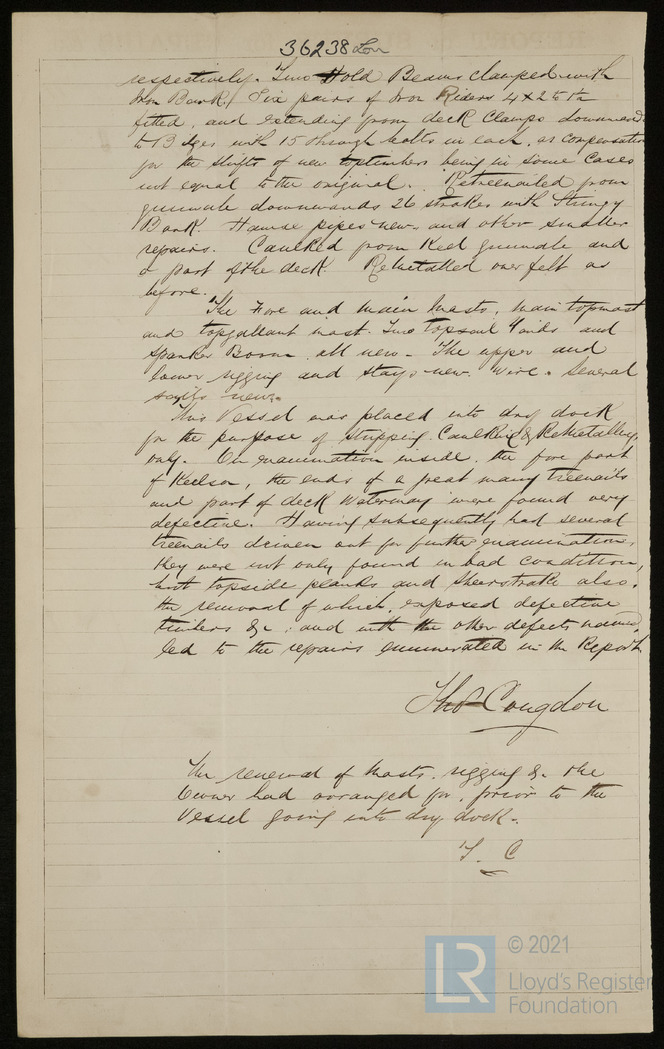 36238 Lon
respectively. Two Hold Beams clamped with
Iron Bark. Six pairs of Iron Riders 4 x 2 5/8 in
fitted, and extending from deck clamps downwards
to Bilges with 15 through bolts in each, as compensation
for the shifts of new toptimbers being in some cases
not equal to the original. Retreenailed from
gunwale downwards 26 strakes with Stringy
Bark. Hawse pipes new, and other smaller
repairs. Caulked from Keel gunwale and
a part of the deck. Remetalled over felt as
before.
The Fore and Main masts, main topmast
and topgallant mast. Two topsail Yards and
Spanker Boom, all new. The upper and
lower rigging and stays new wire. Several
sails new.
This Vessel was placed into dry dock
for the purpose of stripping Caulking & Remetalling
only. On examination inside, the fore part
of Keelson, the ends of a great many treenails
and part of deck Waterway were found very
defective. Having subsequently had several
treenails driven out for further examination,
they were not only found in bad condition,
but topside planks and sheerstrake also,
the removal of which, exposed defective
timbers &c, and with the other defects named,
led to the repairs enumerated in the Report
Thos Congdon
The renewal of masts, rigging &c the
Owner had arranged for, prior to the
Vessel going into dry dock.
T. C
LR
© 2021
Lloyd's Register
Foundation